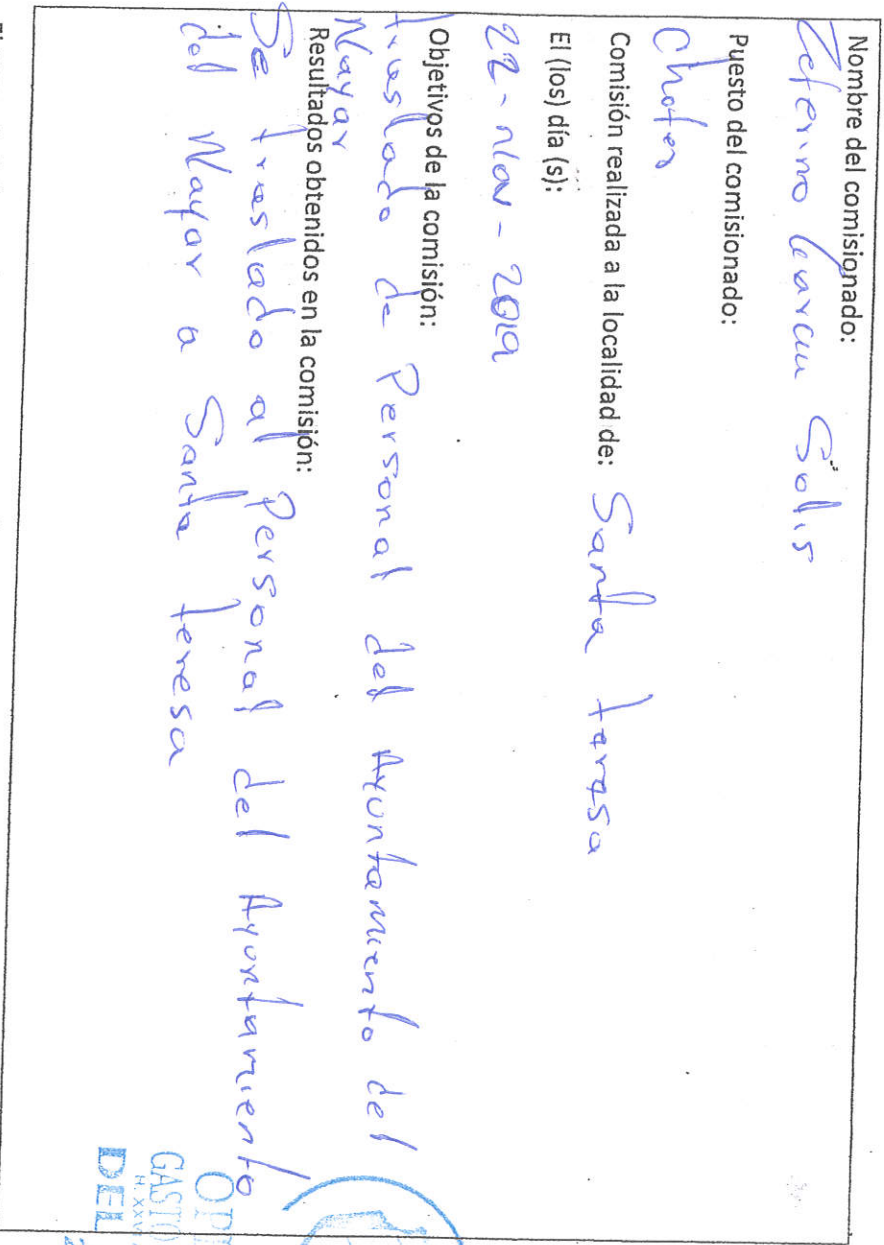 Nombre del comisionado:
Zeferino Garcia Solis
Puesto del comisionado:
Chofer
Comisión realizada a la localidad de: Santa teresa
El (los) día (s):
22 - Nov - 2019
Objetivos de la comisión:
traslado de Personal del Ayuntamiento del
Nayar
Resultados obtenidos en la comisión:
Se traslado al Personal del Ayuntamiento
del Nayar a Santa teresa
GASTO
DEL